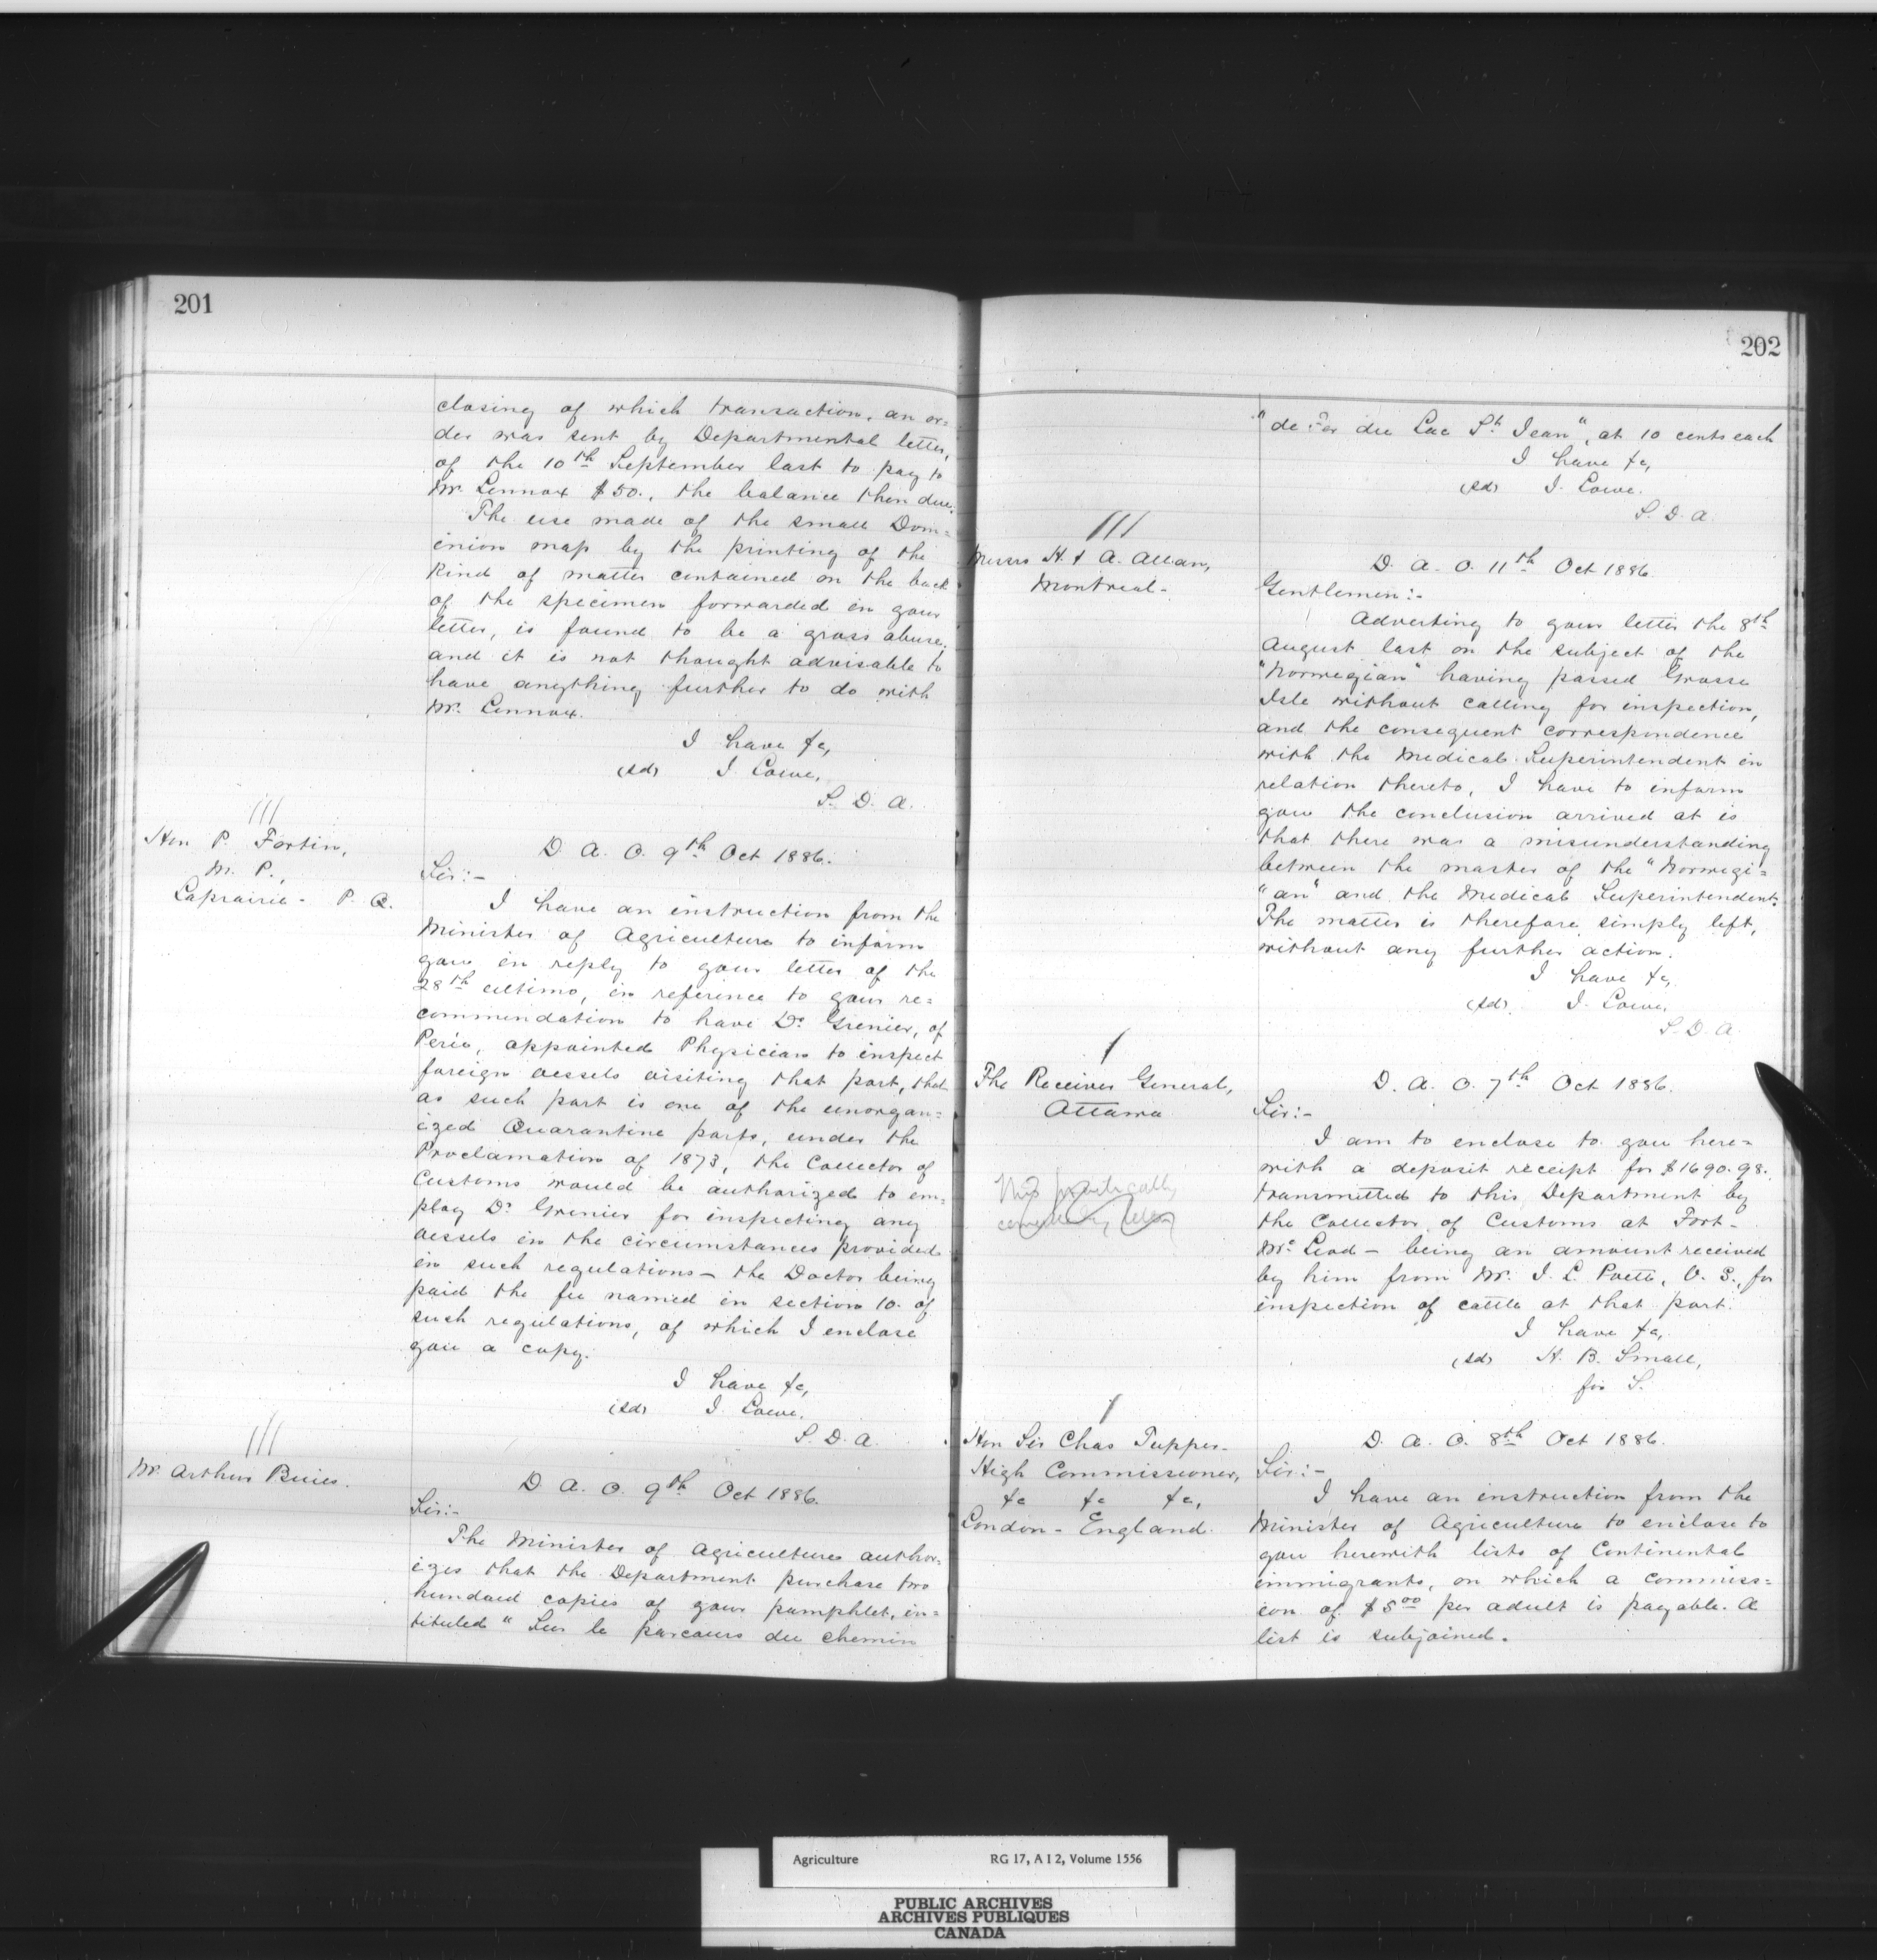 201
closing of which transaction, an or=
der was sent by Departmental letter,
of the 10th September last to pay to
Mr. Lennox $50., the balance then due.
The use made of the small Dom=
inion map by the printing of the
kind of matter contained on the back
of the specimen forwarded in your
letter, is found to be a gross abuse,
and it is not thought advisable to
have anything further to do with
Mr. Lennox.
I have &c,
(sd) J. Lowe,
S. D. A.
///
Hon P. Fortin,
M. P.,
Laprairie - P. Q.
D. A. O. 9th Oct 1886.
Sir:-
I have an instruction from the
Minister of Agriculture to inform
you in reply to your letter of the
28th ultimo, in reference to your re=
commendation to have Dr Grenier, of
Percé, appointed Physician to inspect
foreign vessels visiting that port, that
as such port is one of the unorgan=
ized Quarantine ports, under the
Proclamation of 1873, the Collector of
Customs would be authorized to em=
ploy Dr Grenier for inspecting any
vessels in the circumstances provided
in such regulations - the Doctor being
paid the fee named in section 10. of
such regulations, of which I enclose
you a copy.
I have &c,
(sd) J. Lowe,
S. D. A.
///
Mr. Arthur Buies.
D. A. O. 9th Oct 1886.
Sir:-
The Minister of Agriculture author=
izes that the Department purchase two
hundred copies of your pamphlet, in=
tituled "Sur le parcours du chemin
202
"de Fer du Lac St Jean", at 10 cents each
I have &c,
(sd) J. Lowe.
S. D. A.
///
Messrs H. & A. Allan,
Montreal -
D. A. O. 11th Oct 1886.
Gentlemen:-
Adverting to your letter the 8th
August last on the subject of the
"Norwegian" having passed Grosse
Isle without calling for inspection,
and the consequent correspondence
with the Medical Superintendent in
relation thereto, I have to inform
you the conclusion arrived at is
that there was a misunderstanding
between the master of the "Norwegi=
"an" and the Medical Superintendent.
The matter is therefore simply left,
without any further action.
I have &c,
(sd). J. Lowe,
S. D. A.
/
The Receiver General,
Ottawa
D. A. O. 7th Oct 1886.
Sir:-
I am to enclose to you here=
with a deposit receipt for $1690.98.
transmitted to this Department by
the Collector of Customs at Fort -
McLeod - being an amount received
by him from Mr. J. L. Poett, V. S., for
inspection of cattle at that port.
I have &c,
(sd) H. B. Small,
for S.
/
Hon Sir Chas Tupper -
High Commissioner,
&c &c &c,
London - England.
D. A. O. 8th Oct 1886.
Sir:-
I have an instruction from the
Minister of Agriculture to enclose to
you herewith lists of Continental
immigrants, on which a commiss=
ion of $5.00 per adult is payable. A
list is subjoined.
Agriculture RG 17, A I 2, Volume 1556
PUBLIC ARCHIVES
ARCHIVES PUBLIQUES
CANADA